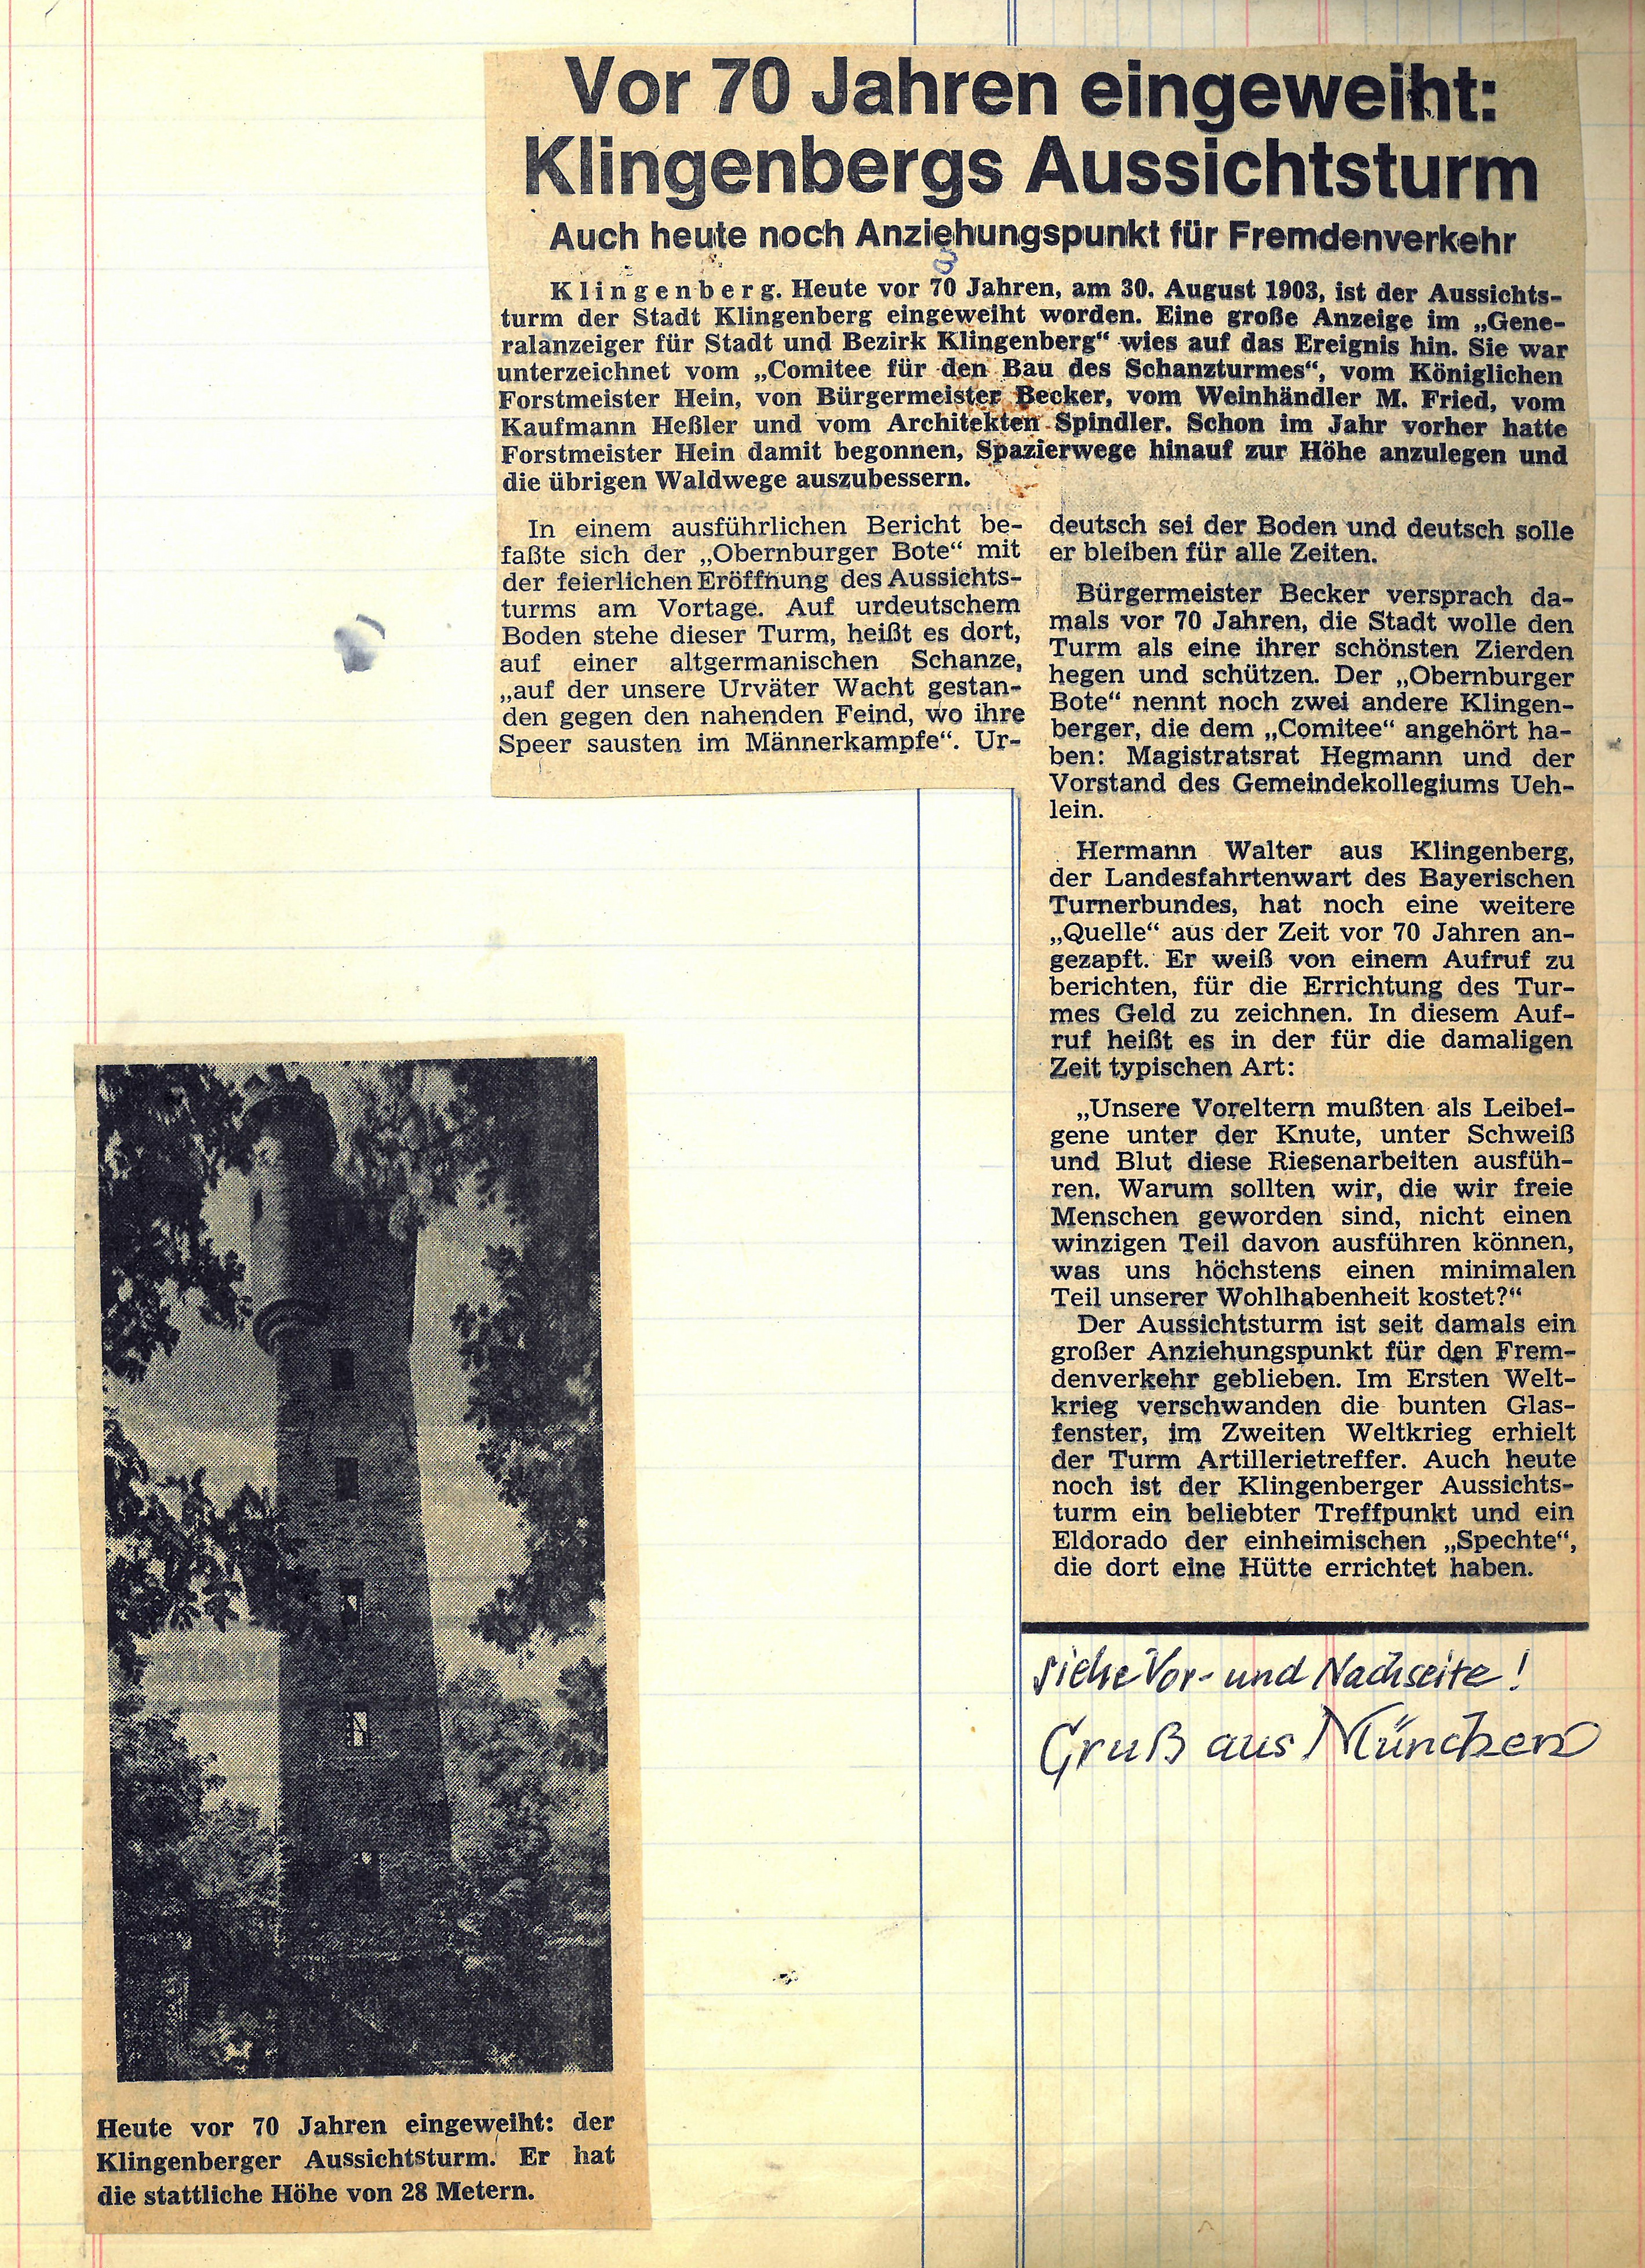 Vor 70 Jahren eingeweiht:
Klingenbergs Aussichtsturm
Auch heute noch Anziehungspunkt für Fremdenverkehr
Klingenberg. Heute vor 70 Jahren, am 30. August 1903, ist der Aussichts-
turm der Stadt Klingenberg eingeweiht worden. Eine große Anzeige im „Gene-
ralanzeiger für Stadt und Bezirk Klingenberg“ wies auf das Ereignis hin. Sie war
unterzeichnet vom „Comitee für den Bau des Schanzturmes“, vom Königlichen
Forstmeister Hein, von Bürgermeister Becker, vom Weinhändler M. Fried, vom
Kaufmann Heßler und vom Architekten Spindler. Schon im Jahr vorher hatte
Forstmeister Hein damit begonnen, Spazierwege hinauf zur Höhe anzulegen und
die übrigen Waldwege auszubessern.
In einem ausführlichen Bericht be-
faßte sich der „Obernburger Bote“ mit
der feierlichen Eröffnung des Aussichts-
turms am Vortage. Auf urdeutschem
Boden stehe dieser Turm, heißt es dort,
auf einer altgermanischen Schanze,
„auf der unsere Urväter Wacht gestan-
den gegen den nahenden Feind, wo ihre
Speer sausten im Männerkampfe“. Ur-
deutsch sei der Boden und deutsch solle
er bleiben für alle Zeiten.
Bürgermeister Becker versprach da-
mals vor 70 Jahren, die Stadt wolle den
Turm als eine ihrer schönsten Zierden
hegen und schützen. Der „Obernburger
Bote“ nennt noch zwei andere Klingen-
berger, die dem „Comitee“ angehört ha-
ben: Magistratsrat Hegmann und der
Vorstand des Gemeindekollegiums Ueh-
lein.
Hermann Walter aus Klingenberg,
der Landesfahrtenwart des Bayerischen
Turnerbundes, hat noch eine weitere
„Quelle“ aus der Zeit vor 70 Jahren an-
gezapft. Er weiß von einem Aufruf zu
berichten, für die Errichtung des Tur-
mes Geld zu zeichnen. In diesem Auf-
ruf heißt es in der für die damaligen
Zeit typischen Art:
„Unsere Voreltern mußten als Leibei-
gene unter der Knute, unter Schweiß
und Blut diese Riesenarbeiten ausfüh-
ren. Warum sollten wir, die wir freie
Menschen geworden sind, nicht einen
winzigen Teil davon ausführen können,
was uns höchstens einen minimalen
Teil unserer Wohlhabenheit kostet?“
Der Aussichtsturm ist seit damals ein
großer Anziehungspunkt für den Frem-
denverkehr geblieben. Im Ersten Welt-
krieg verschwanden die bunten Glas-
fenster, im Zweiten Weltkrieg erhielt
der Turm Artillerietreffer. Auch heute
noch ist der Klingenberger Aussichts-
turm ein beliebter Treffpunkt und ein
Eldorado der einheimischen „Spechte“,
die dort eine Hütte errichtet haben.
siehe Vor- und Nachseite!
Gruß aus München
Heute vor 70 Jahren eingeweiht: der
Klingenberger Aussichtsturm. Er hat
die stattliche Höhe von 28 Metern.